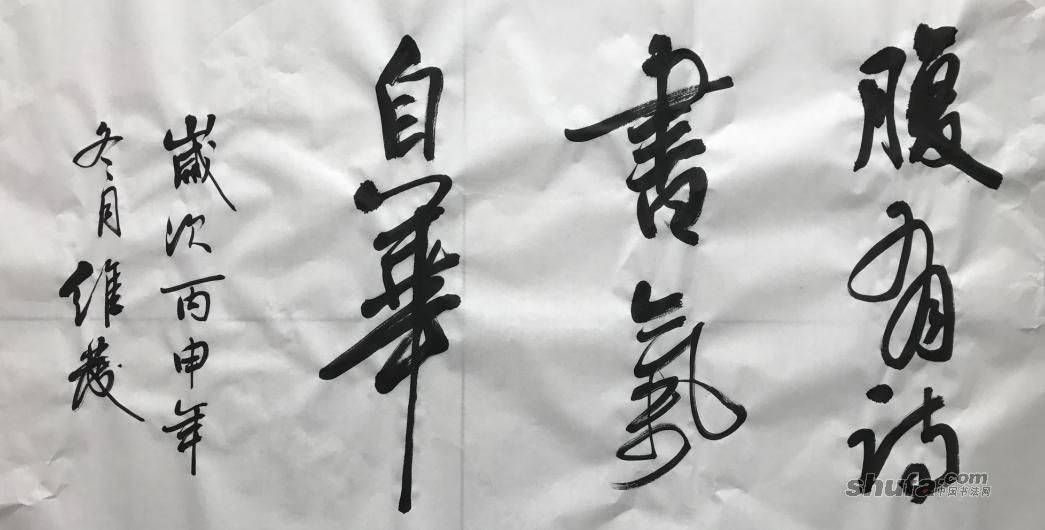 腹有詩
書氣
自華
歲次丙申年
冬月維
shufa.com
中国书法网